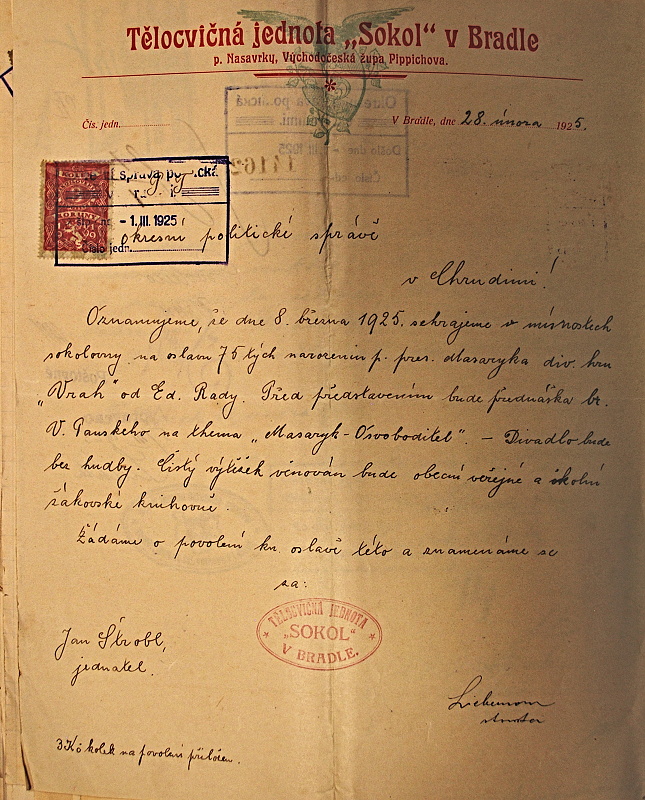 Tělocvičná jednota „Sokol“ v Bradle
p. Nasavrky, Východočeská župa Pippichova.
Čís. jedn.
V Bradle, dne 28. února 1925.
správa politická
- 1. III. 1925
Číslo jedn.
Okresní politické správě
v Chrudimi!
Oznamujeme, že dne 8. března 1925. sehrajeme v místnostech
sokolovny na oslavu 75 tých narozenin p. pres. Masaryka div. hru
„Vrah“ od Ed. Rady. Před představením bude přednáška br.
V. Panského na thema „Masaryk - Osvoboditel“. - Divadlo bude
bez hudby. Čistý výtěžek věnován bude obecní veřejné a školní
žákovské knihovně.
Žádáme o povolení ku oslavě této a znamenáme se
za:
TĚLOCVIČNÁ JEDNOTA
„SOKOL“
V BRADLE.
Jan Štrobl,
jednatel.
starosta
3 Kč kolek na povolení přiložen.